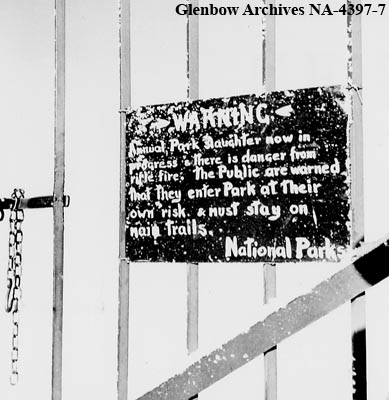 Glenbow Archives NA-4397-7
WARNING
Annual Park Slaughter now in
progress & there is danger from
rifle fire: The Public are warned
that they enter Park at Their
own risk. & must stay on
main Trails.
National Parks